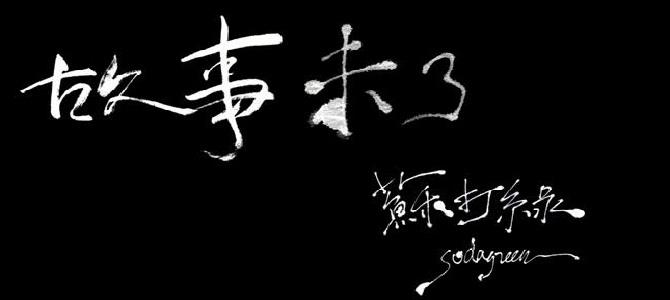 故事未了
蘇打綠
sodagreen